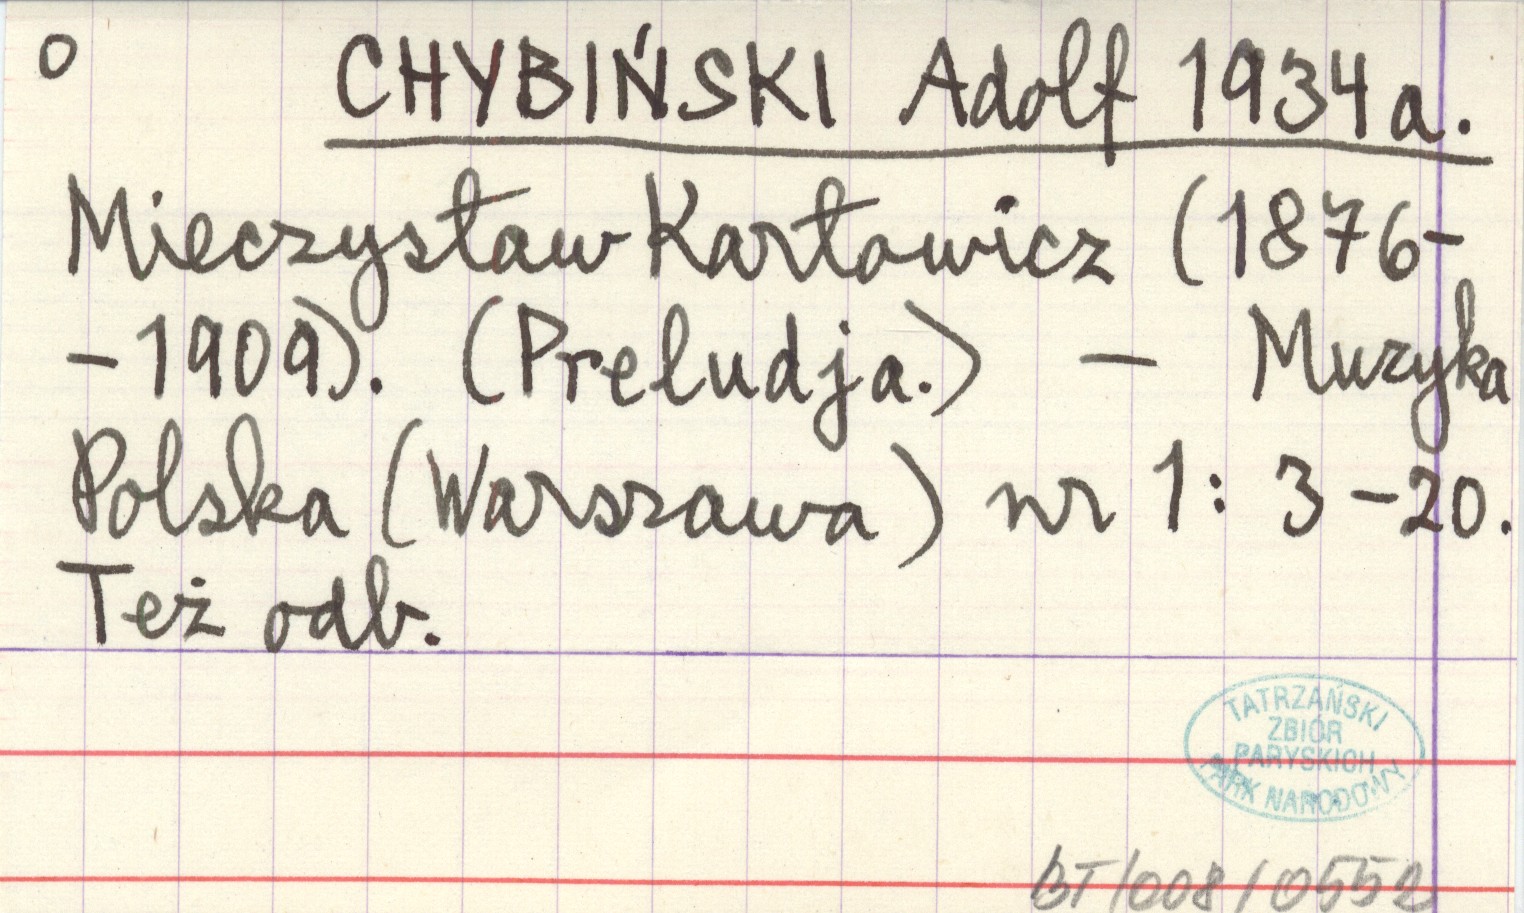 o CHYBIŃSKI Adolf 1934a.
Mieczysław Karłowicz (1876-
-1909). (Preludja.) - Muzyka
Polska (Warszawa) nr 1: 3-20.
Też odb.
TATRZAŃSKI
ZBIÓR
PARYSKICH
PARK NARODOWY
BT/008/0552